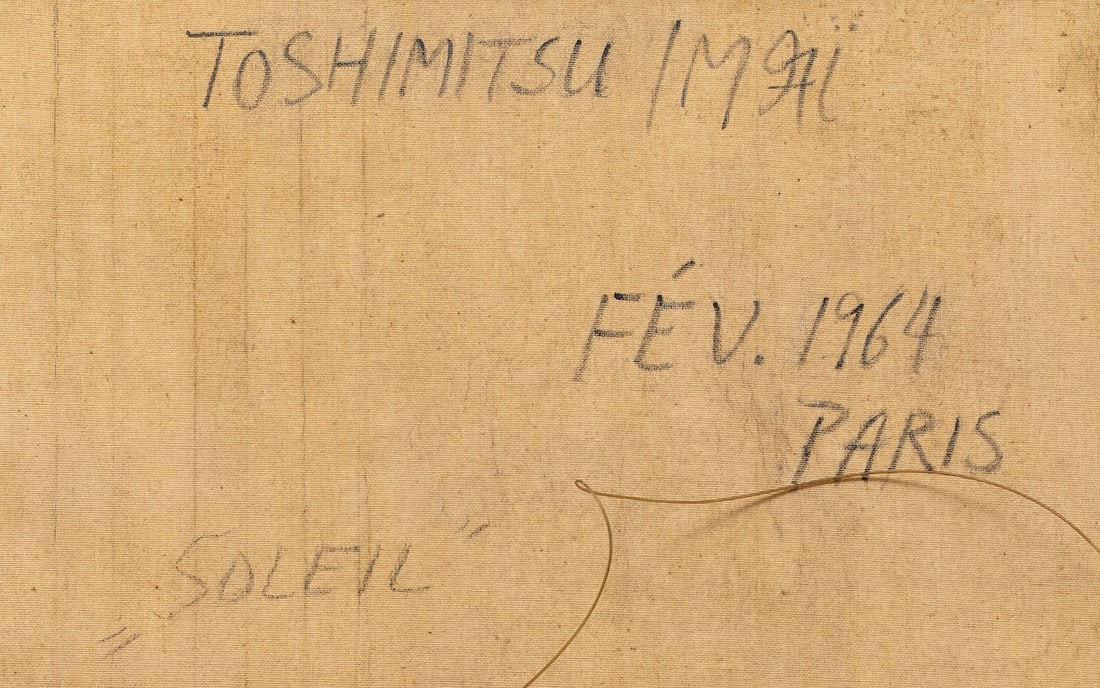 TOSHIMITSU IMAÏ
FÉV. 1964
PARIS
„SOLEIL”